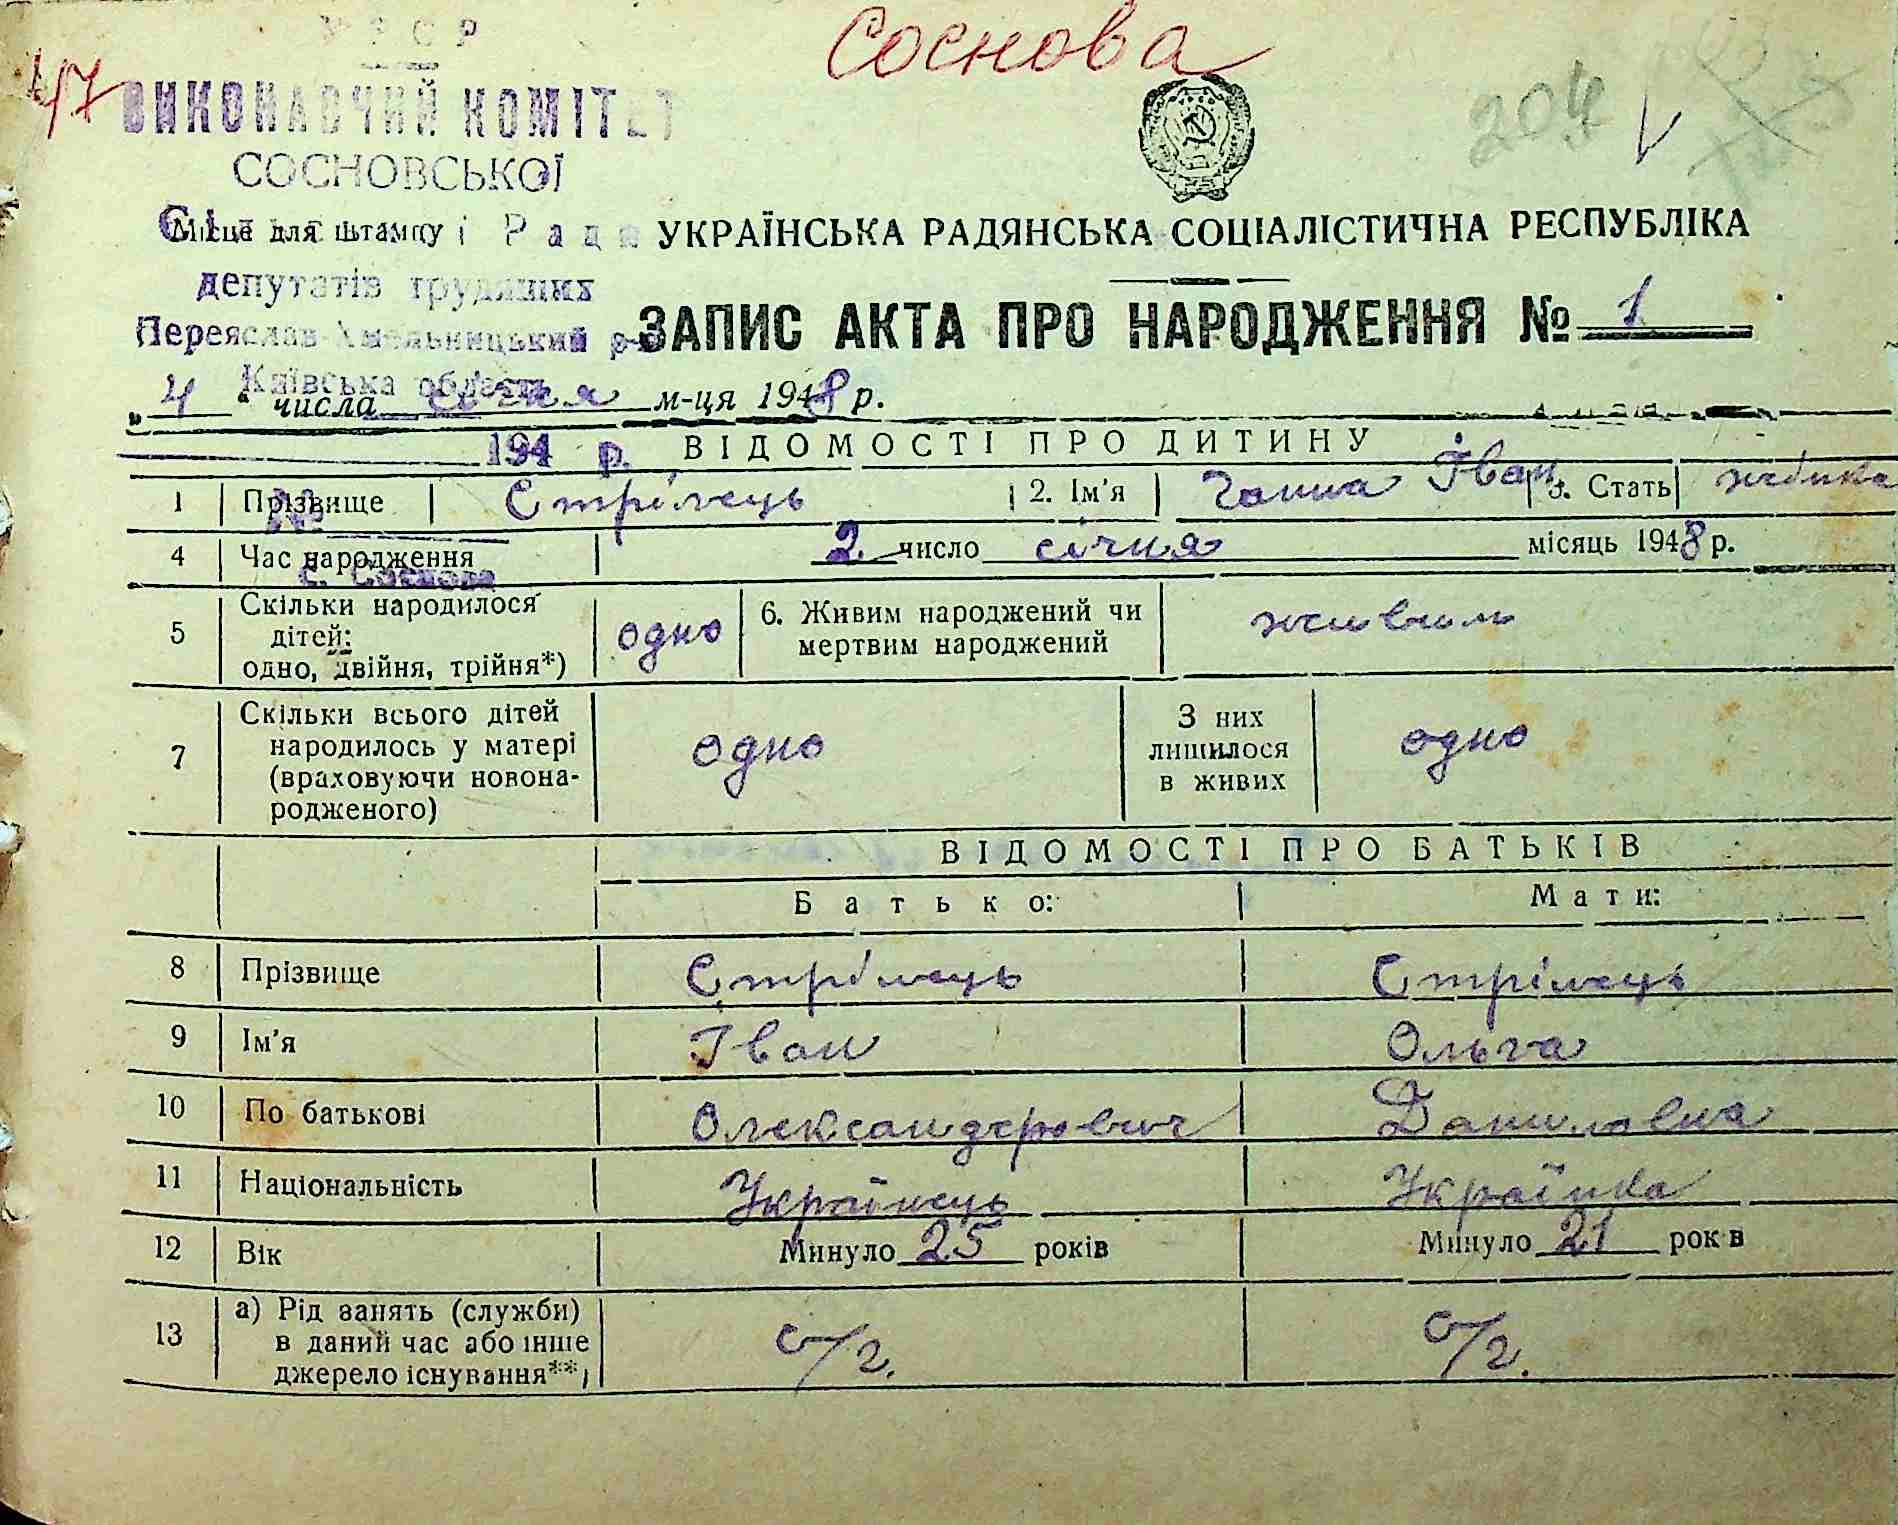 Соснова
47
УРСР
ВИКОНАВЧИЙ КОМІТЕТ
204
СОСНОВСЬКОЇ
Місце для штампу
УКРАЇНСЬКА РАДЯНСЬКА СОЦІАЛІСТИЧНА РЕСПУБЛІКА
депутатів трудящих
ЗАПИС АКТА ПРО НАРОДЖЕННЯ № 1
Переяслав-Хмельницький р-н
Київська область
„4“ числа січня м-ця 1948 р.
194 р.
ВІДОМОСТІ ПРО ДИТИНУ
1 Прізвище Стрілець 2. Ім'я Ганна Іван. 3. Стать жіноча
№
4 Час народження 2 число січня місяць 1948 р.
с. Соснова
5 Скільки народилося дітей: одно, двійня, трійня*) одно 6. Живим народжений чи мертвим народжений живим
7 Скільки всього дітей народилось у матері (враховуючи новонародженого) одно З них лишилося в живих одно
ВІДОМОСТІ ПРО БАТЬКІВ
Батько: Мати:
8 Прізвище Стрілець Стрілець
9 Ім'я Іван Ольга
10 По батькові Олександрович Даниловна
11 Національність Українець Українка
12 Вік Минуло 25 років Минуло 21 років
13 а) Рід занять (служби) в даний час або інше джерело існування**) с/г. с/г.